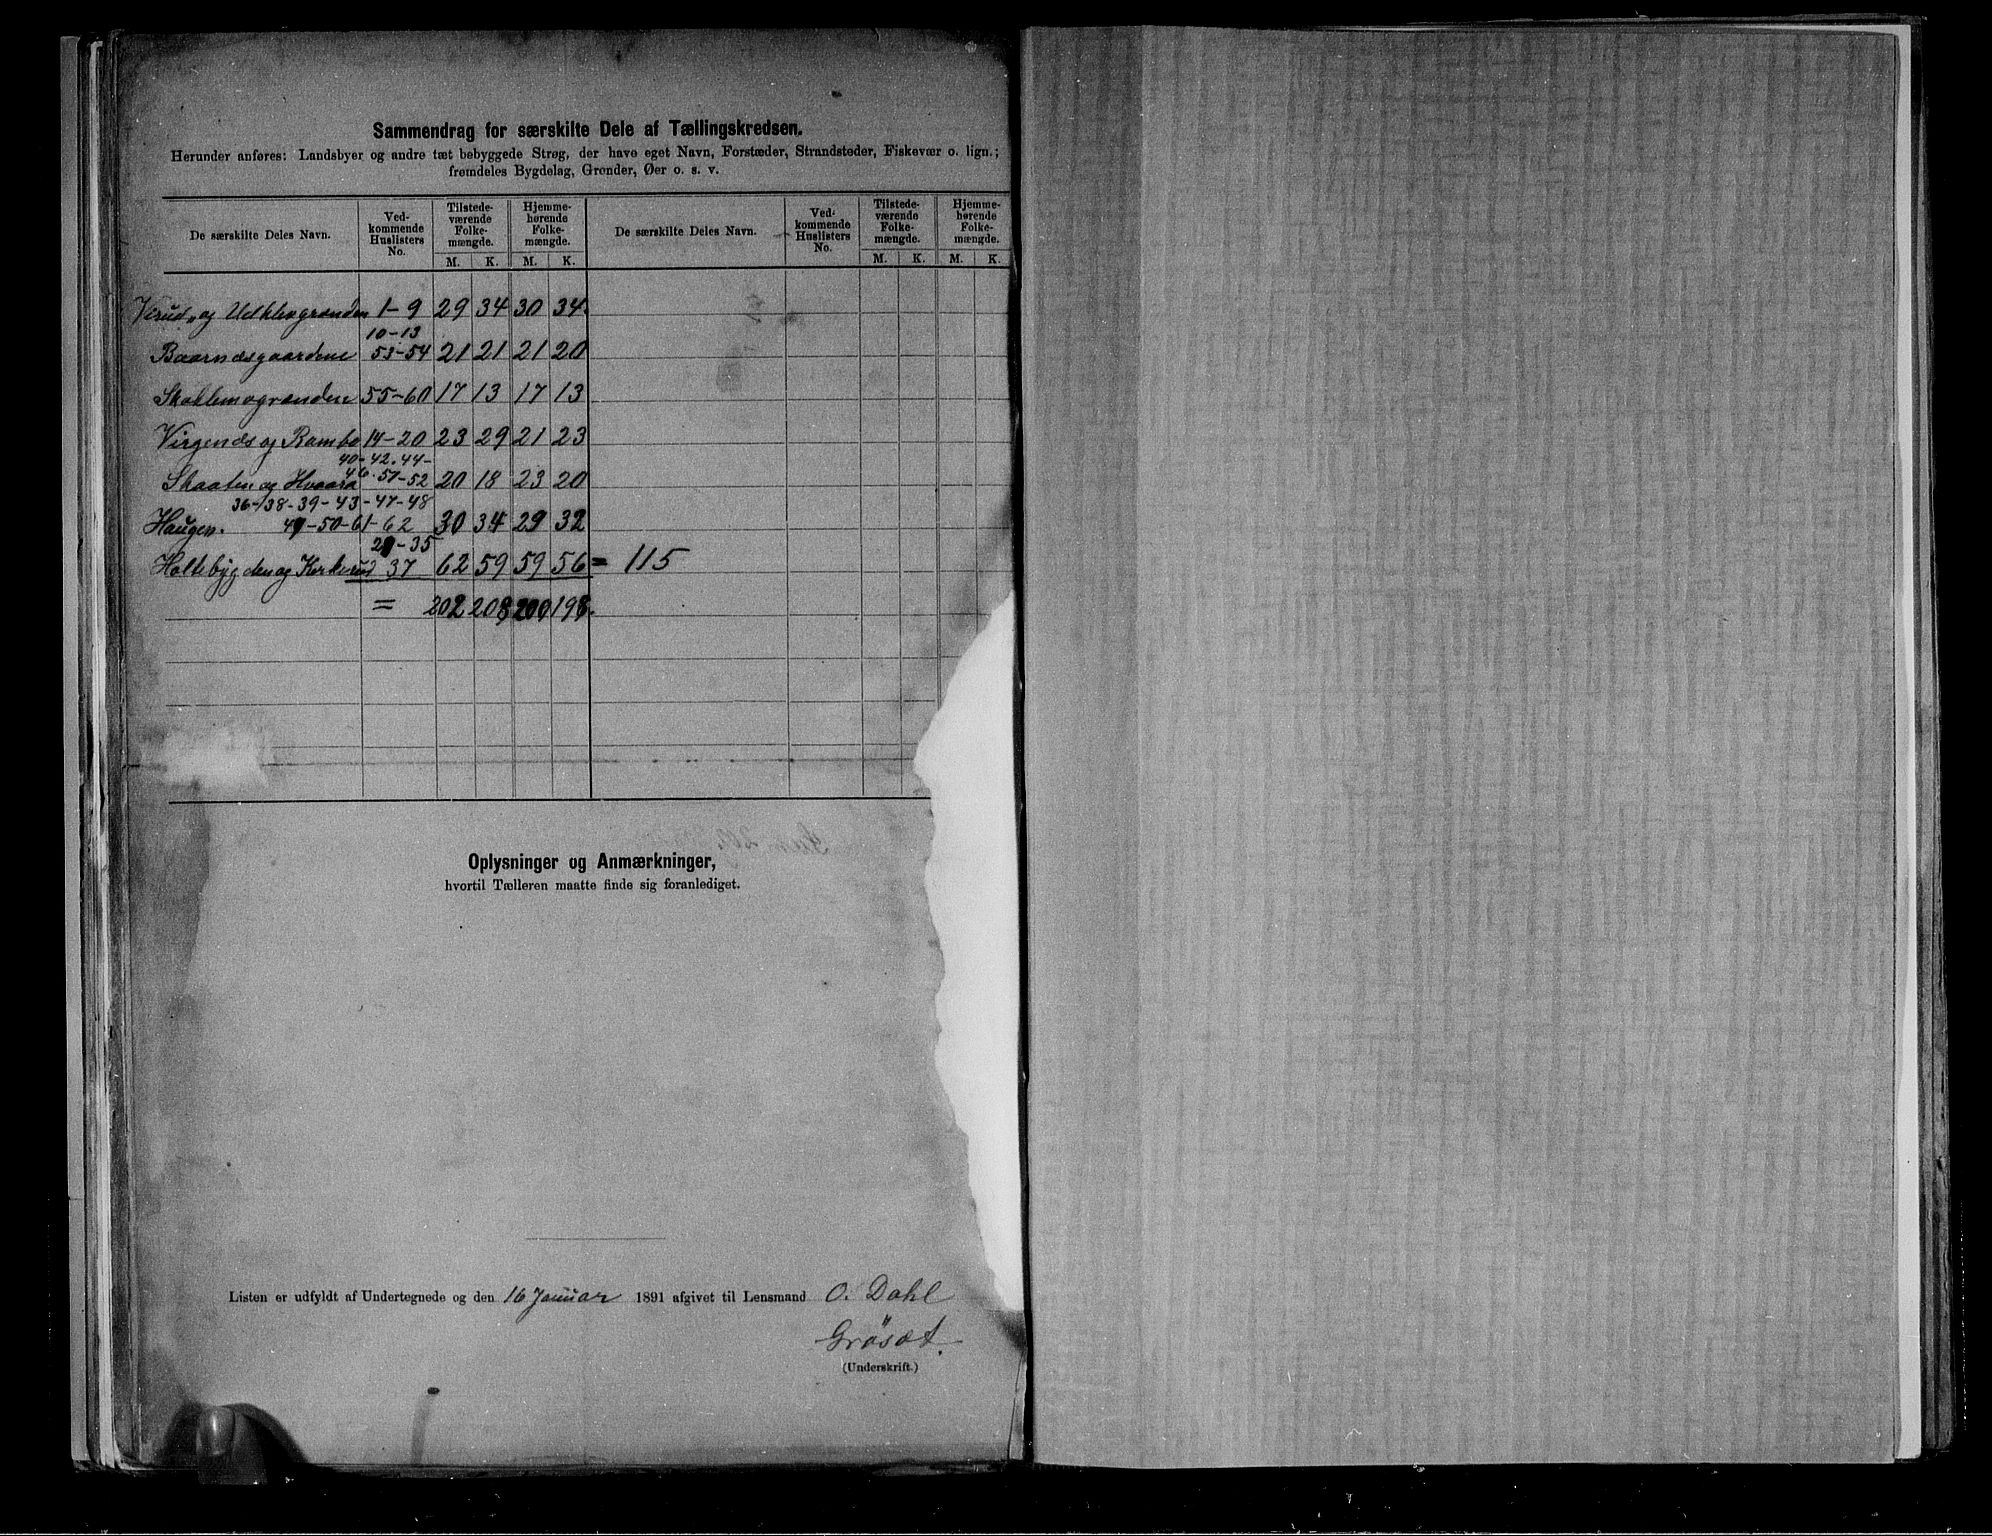 Sammendrag for særskilte Dele af Tællingskredsen.
Herunder anføres: Landsbyer og andre tæt bebyggede Strøg, der have eget Navn, Forstæder, Strandsteder, Fiskevær o. lign.;
fremdeles Bygdelag, Grender, Øer o. s. v.
De særskilte Deles Navn. Ved-kommende Huslisters No. Tilstede-værende Folke-mængde. Hjemme-hørende Folke-mængde. De særskilte Deles Navn. Ved-kommende Huslisters No. Tilstede-værende Folke-mængde. Hjemme-hørende Folke-mængde.
M. K. M. K. M. K. M. K.
og 1-9 29 34 30 34.
10-13
Baarnæsgaardene 53-54 21 21 21 20
Skoklemogrænden 55-60 17 13 17 13
Virgenæs og Rambo 14-20 23 29 21 23
40-42.44-
46.51-52
Skaaten og Hvaara 20 18 23 20
36-38-39-43-47-48
Haugen. 49-50-61-62 30 34 29 32
21-35
Holtebygden og Kirkerud 37 62 59 59 56 = 115
= 202 208 200 198.
Oplysninger og Anmærkninger,
hvortil Tælleren maatte finde sig foranlediget.
Listen er udfyldt af Undertegnede og den 16 Januar 1891 afgivet til Lensmand O. Dahl
Grösæt.
(Underskrift.)